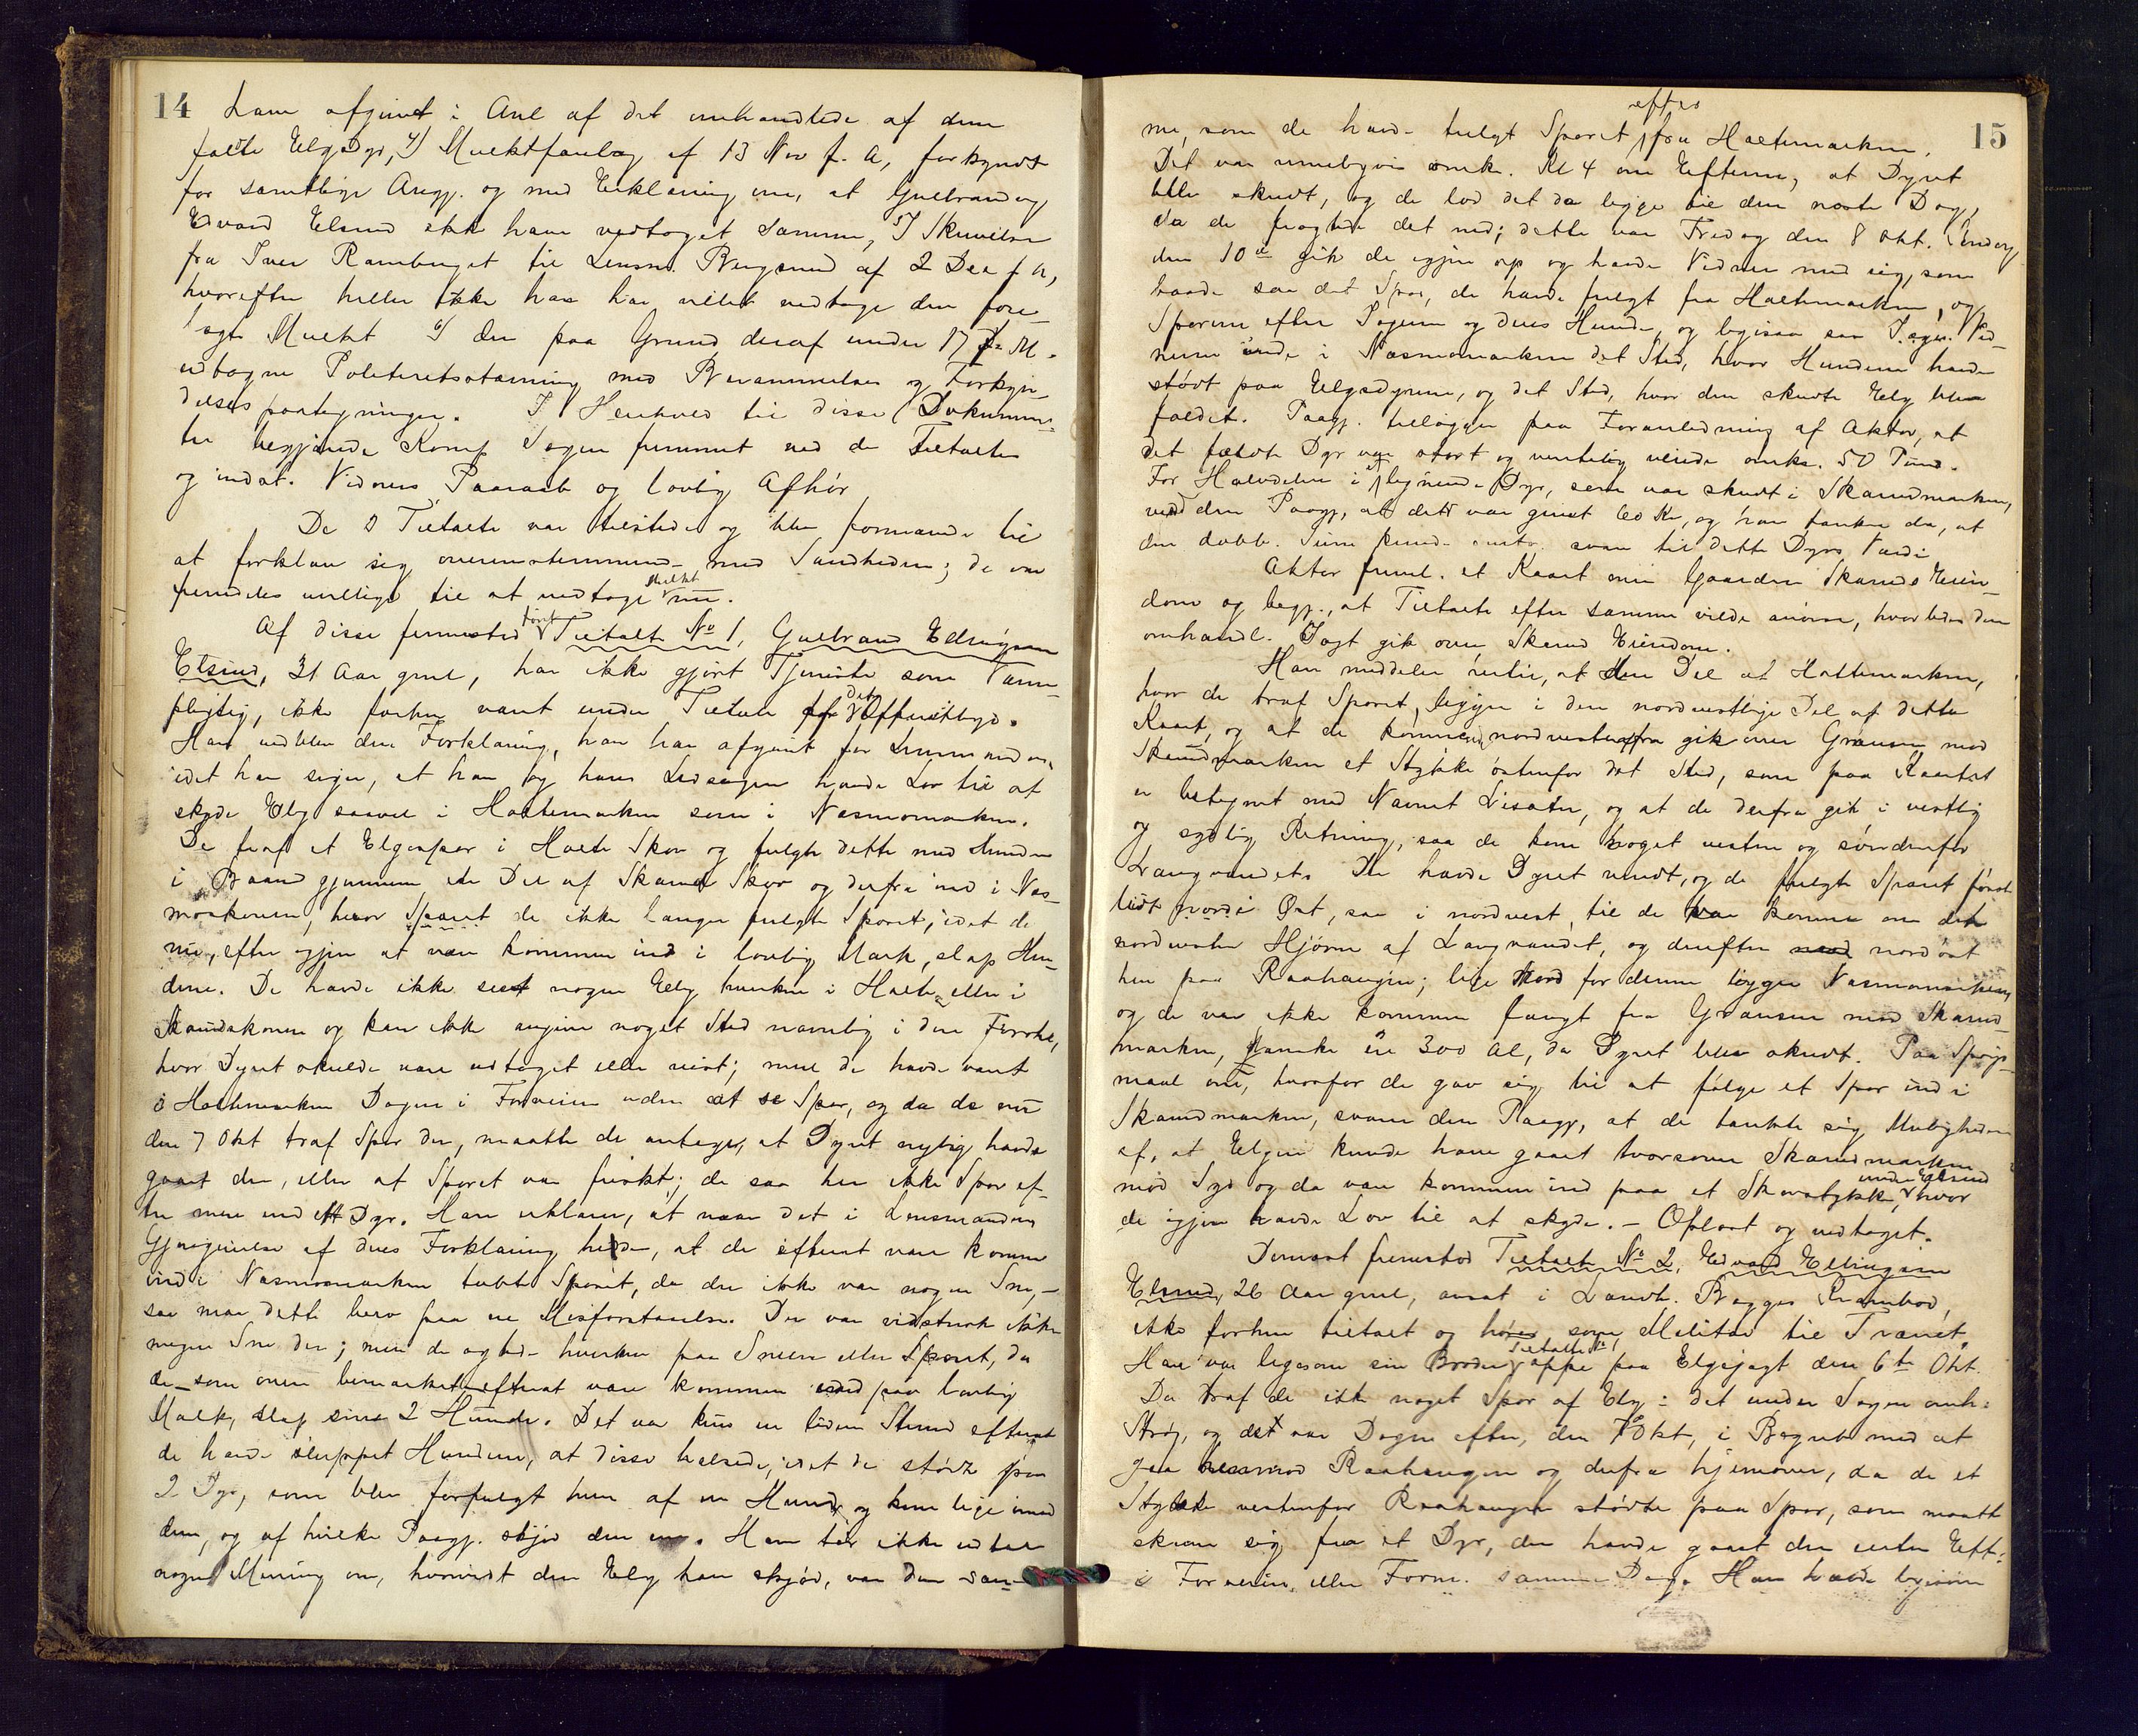 14
Lane afgivet i Anl af det omhandlede af dem
fældte Elgsdyr, 4) Mulktforelæg af 13 Nov f. A, forkyndt
for samtlige Angj. og med Erklæring om, at Gulbrand og
Edvard Elsrud ikke have vedtaget samme, 5) Skrivelse
fra Iver Ramberget til Lensm. Bergsrud af 2 Dec f A,
hvorefter heller ikke han har villet vedtage den fore-
lagte Mulkt 6) den paa Grund deraf under 17 d. M.
udtagne Politiretsstævning med Berammelses og Forkyn-
delsespaategninger. I Henhold til disse Dokumen-
ter begjærede Komp Sagen fremmet ved de Tiltaltes
og indst. Vidners Paaraab og lovlig Afhør
De 3 Tiltalte var tilstede og blev formanede til
at forklare sig overensstemmende med Sandheden; de var
fremdeles uvillige til at vedtage Mulkt nu.
Af disse fremstod først Tiltalte No 1, Gulbrand Edingsen
Elsrud, 31 Aar gml, har ikke gjort Tjeneste som Værne-
pligtig, ikke forhen været under Tiltale af det Offentlige.
Han vedblev den Forklaring, han har afgivet for Lensmanden,
idet han siger, at han og hans Ledsagere havde Lov til at
skyde Elg saavel i Holtemarken som i Næsmomarken.
De traf et Elgespor i Holte Skov og fulgte dette med Hunden
i Baand gjennem en Del af Skarud Skov og derfra ind i Næs-
momarken, hvor Sporet de ikke længer fulgte Sporet, idet de
nu, efter igjen at være kommen ind i lovlig Mark, slap Hun-
dene. De havde ikke seet nogen Elg hverken i Holte- eller i
Skarudskoven og kan ikke angive noget Sted navnlig i den første,
hvor Dyret skulde være udtaget eller reist; men de havde været
i Holtemarken Dagen i Forveien uden at se Spor, og da de nu
den 7 Okt traf Spor der, maatte de antage, at Dyret nylig havde
gaaet der, eller at Sporet var friskt; de saa her ikke Spor ef-
ter mere end et Dyr. Han erklærer, at naar det i Lensmandens
Gjengivelse af deres Forklaring heder, at de efterat være komne
ind i Næsmomarken tabte Sporet, da der ikke var nogen Sne, -
saa maa dette bero paa en Misforstaaelse. Der var vistnok ikke
megen Sne der; men de agtede hverken paa Sneen eller Sporet, da
de - som oven bemærket efterat være kommen ind paa lovlig
Mark, slap sine 2 Hunde. Det var kun en liden Stund efterat
de havde sluppet Hundene, at disse halsede, idet de stødte paa
2 Dyr, som blev forfulgt hver af en Hund, og kom lige imod
dem, og af hvilke Paagj. skjød den ene. Han tør ikke udtale
nogen Mening om, hvorvidt den Elg han skjød, var den sam-
15
me, som de havde fulgt Sporet efter fra Holtemarken.
Det var rimeligvis omkr. Kl 4 om Efterm, at Dyret
blev skudt, og de lod det da ligge til den næste Dag,
da de fragtede det ned; dette var Fredag den 8 Okt. Søndag
den 10de gik de igjen op og havde Vidner med sig, som
baade saa det Spor, de havde fulgt fra Holtemarken, og
Sporene efter Dyrene og deres Hunde, og ligesaa saa Vid-
nerne inde i Næsmomarken det Sted, hvor Hundene havde
stødt paa Elgsdyrene, og det Sted, hvor den skudte Elg blev
fældet. Paagj. tillægger paa Foranledning af Aktor, at
det fældte Dyr var stort og ventelig veiede omkr. 50 Pund.
For Halvdelen i et lignende Dyr, som var skudt i Skarudmarken,
ved den Paagj, at det var givet 60 Kr, og han tænker da, at
den dobb. Sum kunde svare til dette Dyrs Værdi
Aktor freml. et Kaart over Gaarden Skaruds Eien-
dom og begj., at Tiltalte efter samme vilde anvise, hvorledes den
omhandl. Jagt gik over Skarud Eiendom.
Han meddeler hertil, at den Del af Holtemarken,
hvor de traf Sporet, ligger i den nordvestlige Del af dette
Kaart, og at de kommende nordvestenfra gik over Grænsen mod
Skarudmarken et Stykke østenfor det Sted, som paa Kaartet
er betegnet med Navnet Lisæter, og at de derfra gik i vestlig
og sydlig Retning, saa de kom noget vesten og søndenfor
Langvandet. Der havde Dyret vendt, og de fulgte Sporet først
lidt nord i Øst, saa i nordvest, til de var komne om det
nordvestre Hjørne af Langvandet, og derefter nordøst
hen paa Raahaugen; lige nord for denne ligger Næsmomarken,
og de var ikke kommen langt fra Grænsen mod Skarud-
marken, ganske en 300 Al, da Dyret blev skudt. Paa Spørgs-
maal om, hvorfor de gav sig til at følge et Spor ind i
Skarudmarken, svarer den Paagj, at de tænkte sig Muligheden
af, at Elgen kunde have gaaet tversover Skarudmarken
mod Syd og da være kommen ind paa et Skovstykke under Elsrud, hvor
de igjen havde Lov til at skyde. - Oplæst og vedtaget.
Dernæst fremstod Tiltalte No 2, Edvard Ellingsen
Elsrud, 26 Aar gml, ansat i Landh. Bagges Krambod,
ikke forhen tiltalt og hører som Militær til Trænet.
Han var ligesom sin Broder Tiltalte No 1, oppe paa Elgsjagt den 6te Okt.
Da traf de ikke noget Spor af Elg i det under Sagen omh.
Strøg, og det var Dagen efter, den 7 Okt, i Begreb med at
gaa henimod Raahaugen og derfra hjemover, da de et
Stykke vestenfor Raahaugen stødte paa Spor, som maatte
skrive sig fra et Dyr, der havde gaaet der enten Eft.
i Forveien, eller Form. samme Dag. Han havde ligesom